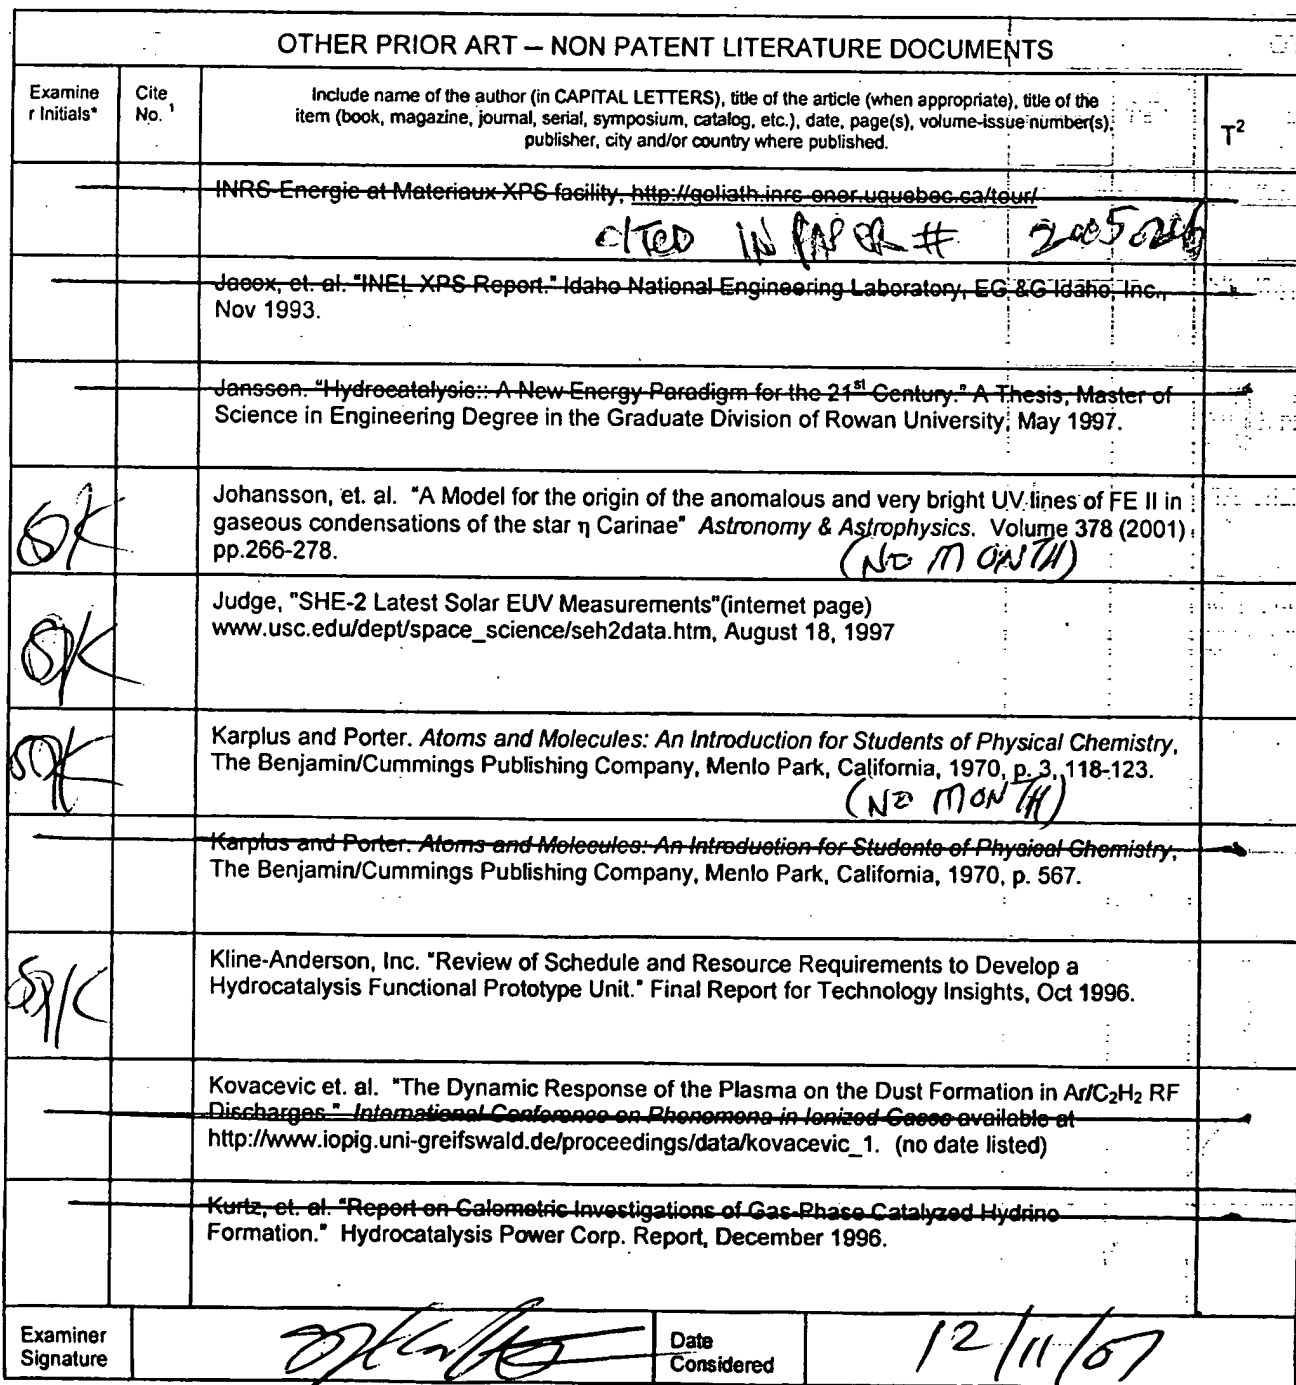 OTHER PRIOR ART – NON PATENT LITERATURE DOCUMENTS
Examine
r Initials*
Cite
No. 1
Include name of the author (in CAPITAL LETTERS), title of the article (when appropriate), title of the
item (book, magazine, journal, serial, symposium, catalog, etc.), date, page(s), volume-issue number(s),
publisher, city and/or country where published.
T2
INRS-Energie at Materiaux XPS facility, http://goliath.inrs-ener.uquebec.ca/tour/
CITED IN PAPER #
Jacox, et. al. "INEL XPS Report." Idaho National Engineering Laboratory, EG &G Idaho, Inc.,
Nov 1993.
Jansson. "Hydrocatalysis:: A New Energy Paradigm for the 21st Century." A Thesis, Master of
Science in Engineering Degree in the Graduate Division of Rowan University, May 1997.
Johansson, et. al. "A Model for the origin of the anomalous and very bright UV lines of FE II in
gaseous condensations of the star η Carinae" Astronomy & Astrophysics. Volume 378 (2001)
pp.266-278.
(NO MONTH)
Judge, "SHE-2 Latest Solar EUV Measurements"(internet page)
www.usc.edu/dept/space_science/seh2data.htm, August 18, 1997
Karplus and Porter. Atoms and Molecules: An Introduction for Students of Physical Chemistry,
The Benjamin/Cummings Publishing Company, Menlo Park, California, 1970, p. 3, 118-123.
(NO MONTH)
Karplus and Porter. Atoms and Molecules: An Introduction for Students of Physical Chemistry,
The Benjamin/Cummings Publishing Company, Menlo Park, California, 1970, p. 567.
Kline-Anderson, Inc. "Review of Schedule and Resource Requirements to Develop a
Hydrocatalysis Functional Prototype Unit." Final Report for Technology Insights, Oct 1996.
Kovacevic et. al. "The Dynamic Response of the Plasma on the Dust Formation in Ar/C2H2 RF
Discharges." International Conference on Phenomena in Ionized Gases available at
http://www.iopig.uni-greifswald.de/proceedings/data/kovacevic_1. (no date listed)
Kurtz, et. al. "Report on Calometric Investigations of Gas-Phase Catalyzed Hydrino
Formation." Hydrocatalysis Power Corp. Report, December 1996.
Examiner
Signature
Date
Considered
12/11/07